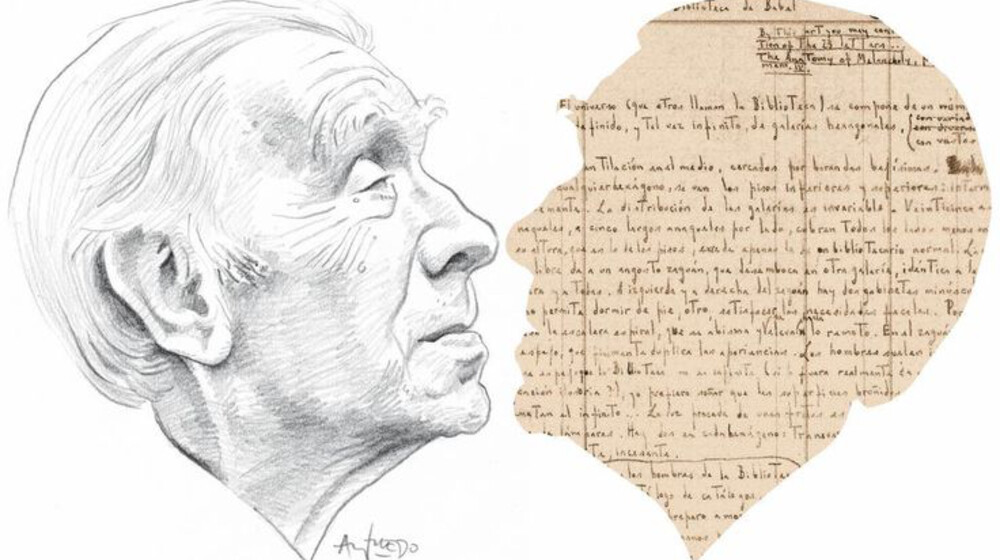 Biblioteca de Babel
By this art you may con
tion of the 23 letters...
The Anatomy of Melancholy,
El universo (que otros llaman la Biblioteca) se compone de un núm
definido, y tal vez infinito, de galerías hexagonales,
con variad
con diversos
con vastos
ntilación en el medio, cercados por barandas bajísimas.
cualquier hexágono, se ven los pisos inferiores y superiores: interm
emente. La distribución de las galerías es invariable. Veinticinco a
naqueles, a cinco largos anaqueles por lado, cubren todos los lados menos
altura, que es la de los pisos, excede apenas la de un bibliotecario normal. La
libre da a un angosto zaguán, que desemboca en otra galería, idéntica a la
ra y a todas. A izquierda y a derecha del zaguán hay dos gabinetes minúsc
permite dormir de pie; otro, satisfacer las necesidades fecales. Por
la escalera espiral, que se abisma y se eleva a lo remoto. En el zaguá
espejo, que duplica las apariencias. Los hombres suelen
ese espejo que la Biblioteca no es infinita (si lo fuera realmente
ilusoria?); yo prefiero soñar que las superficies bruñidas
metan el infinito... La luz procede de unas frutas es
lámparas. Hay dos en cada hexágono: transve
incesante.
los hombres de la Bibliotec
logo de catálogos
preparo a mo
ALFREDO